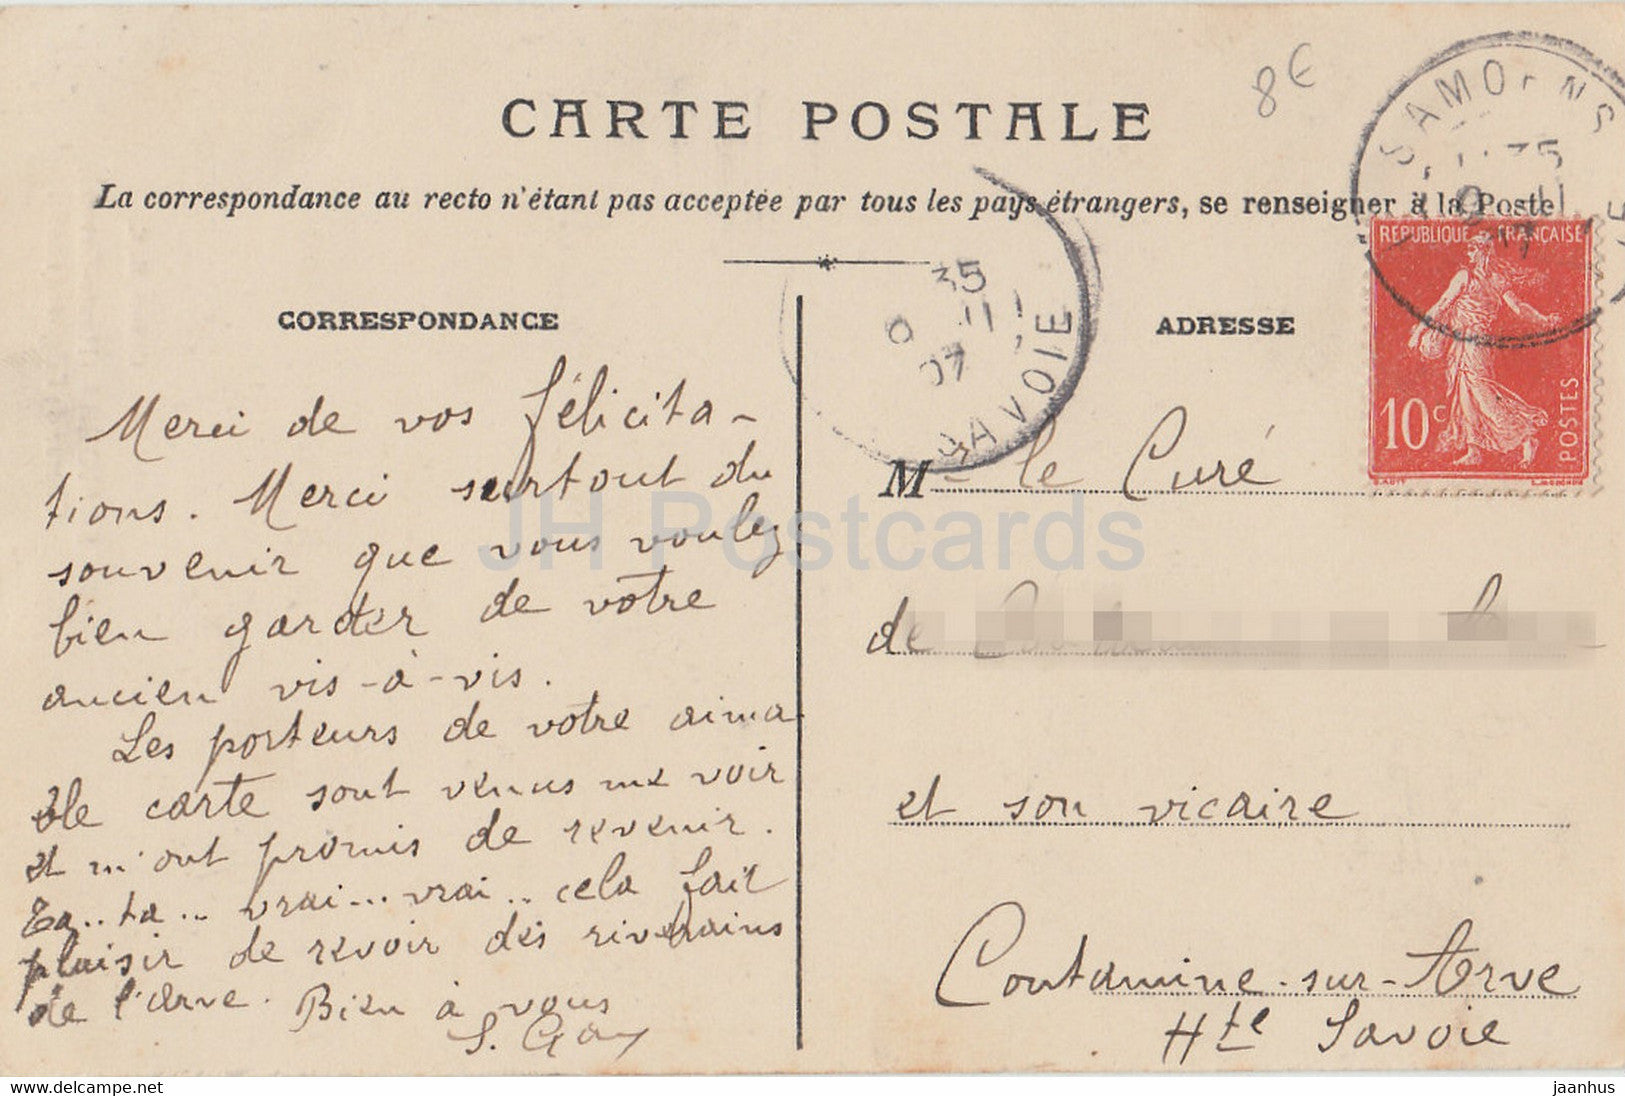 8€
CARTE POSTALE
La correspondance au recto n'étant pas acceptée par tous les pays étrangers, se renseigner à la Poste
CORRESPONDANCE
Merci de vos félicita-
tions. Merci surtout du
souvenir que vous voulez
bien garder de votre
ancien vis-à-vis.
Les porteurs de votre aima
ble carte sont venus me voir
et m'ont promis de revenir.
Ta..ta.. vrai... vrai.. cela fait
plaisir de revoir des riverains
de l'Arve. Bien à vous
S. Gay
ADRESSE
M le Curé
de
et son vicaire
Contamine-sur-Arve
Hte Savoie
SAMOENS
35
11
07
SAVOIE
REPUBLIQUE FRANCAISE
10c
POSTES
JH Postcards
www.delcampe.net
jaanhus